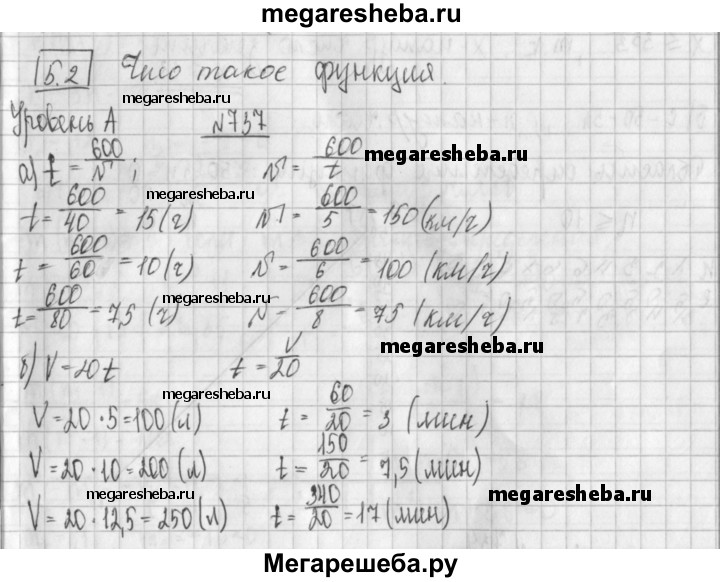 megaresheba.ru
5.2 Что такое функция.
megaresheba.ru
Уровень А №737
а) t = 600/v; v = 600/t
megaresheba.ru
megaresheba.ru
t = 600/40 = 15 (ч) v = 600/5 = 150 (км/ч)
t = 600/60 = 10 (ч) v = 600/6 = 100 (км/ч)
megaresheba.ru
t = 600/80 = 7,5 (ч) v = 600/8 = 75 (км/ч)
megaresheba.ru
б) V = 20t t = V/20
megaresheba.ru
V = 20 · 5 = 100 (л) t = 60/20 = 3 (мин)
V = 20 · 10 = 200 (л) t = 150/20 = 7,5 (мин)
megaresheba.ru
megaresheba.ru
V = 20 · 12,5 = 250 (л) t = 340/20 = 17 (мин)
megaresheba.ru
Мегарешеба.ру